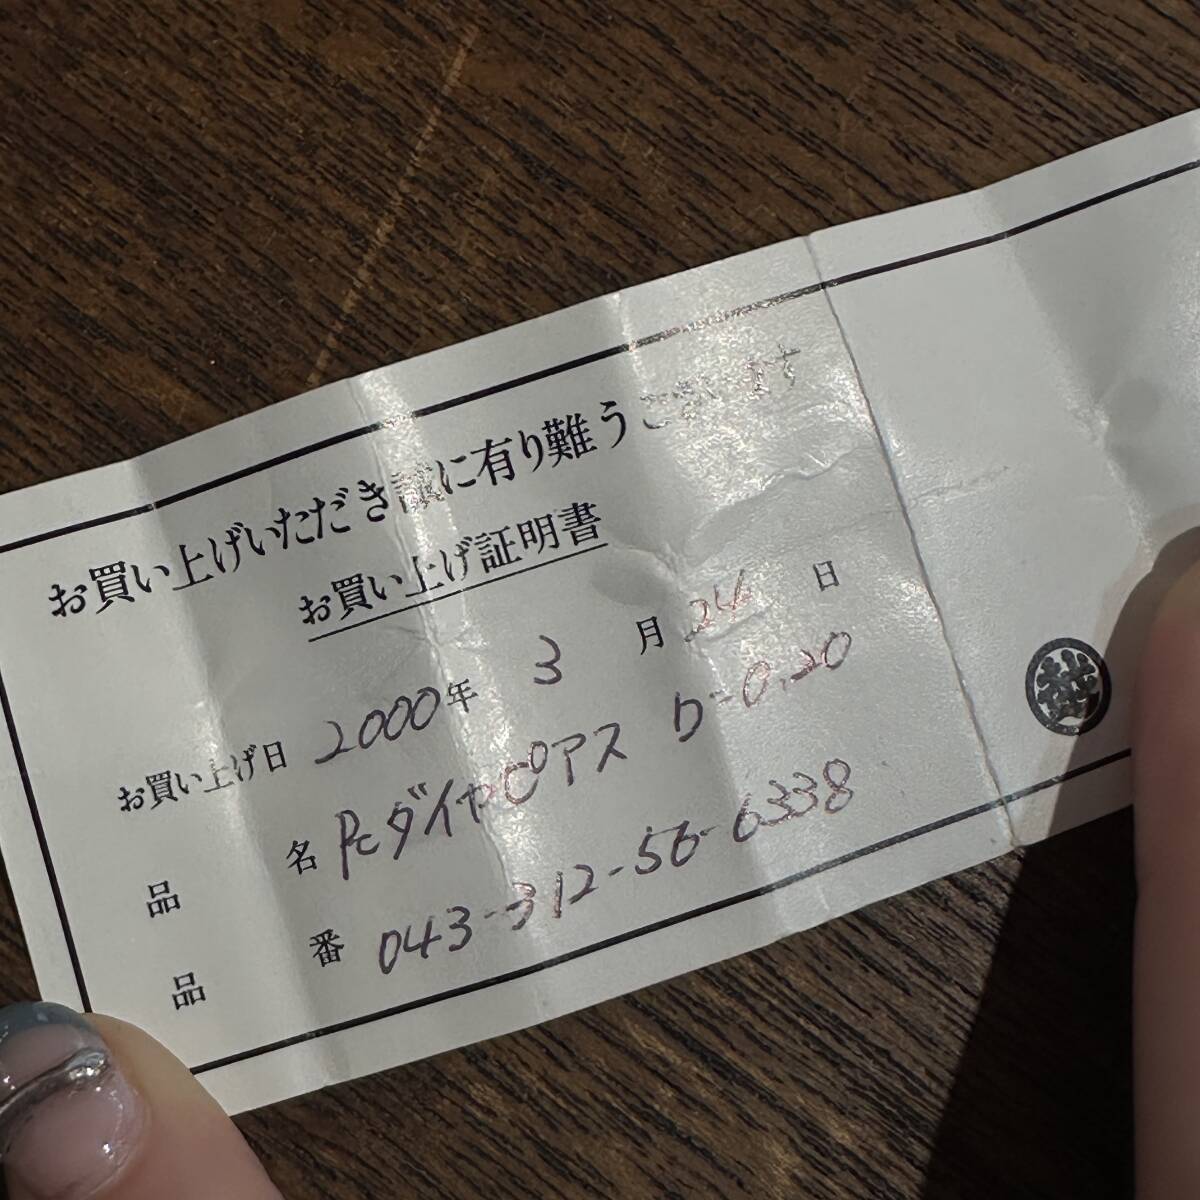 お買い上げいただき誠に有り難うございます
お買い上げ証明書
お買い上げ日 2000年 3 月 24 日
品 名 Pt ダイヤピアス D-0.20
品 番 043-312-56-6338